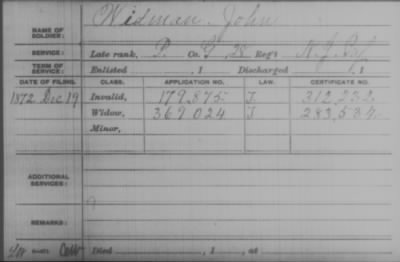 NAME OF SOLDIER: Widman, John
SERVICE: Late rank, P. Co. G 28 Reg't N.J. Inf.
TERM OF SERVICE: Enlisted , 1 Discharged , 1
DATE OF FILING. CLASS. APPLICATION NO. LAW. CERTIFICATE NO.
1872 Dec 19 Invalid, 179,875. 312,232.
Widow, 369024 283,534.
Minor,
ADDITIONAL SERVICES:
REMARKS:
Died , 1 , at